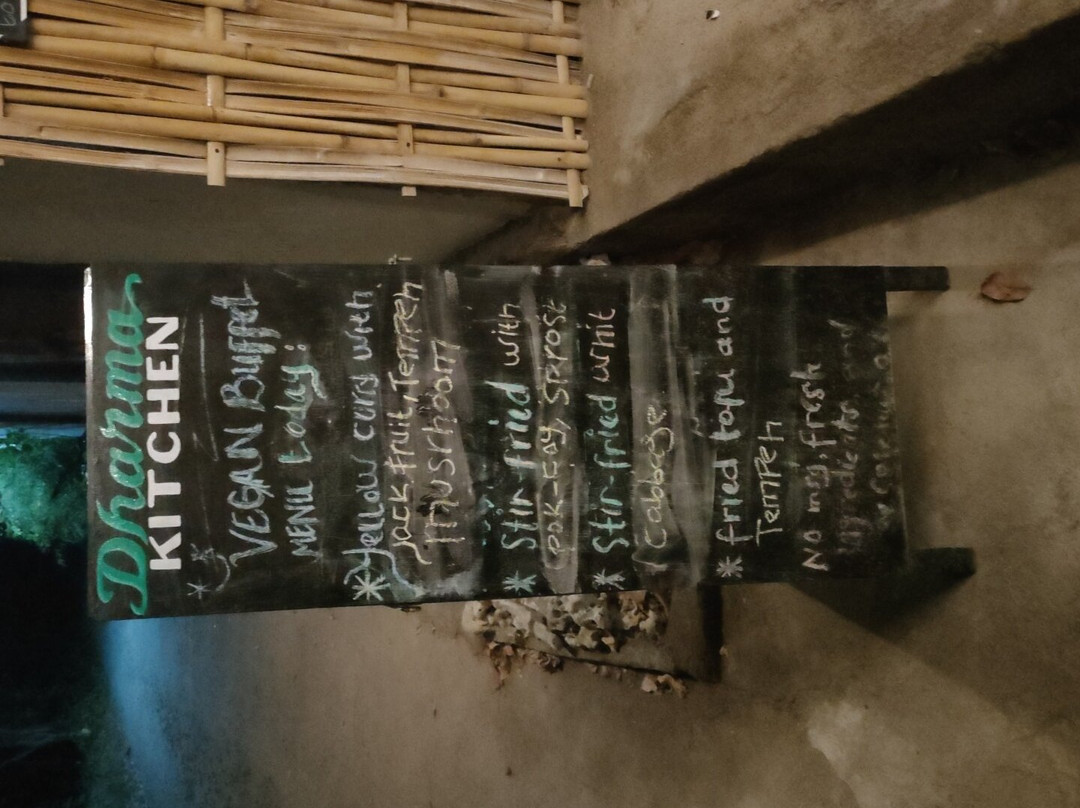 Dharma
KITCHEN
VEGAN Buffet
MENU today:
* Yellow curry with
Jack fruit, Tempeh
Mushroom
* Stir fried with
pok-coy, Sprost
* Stir-fried whit
Cabbage
* fried tofu and
Tempeh
NO msg, fresh
ingredients and